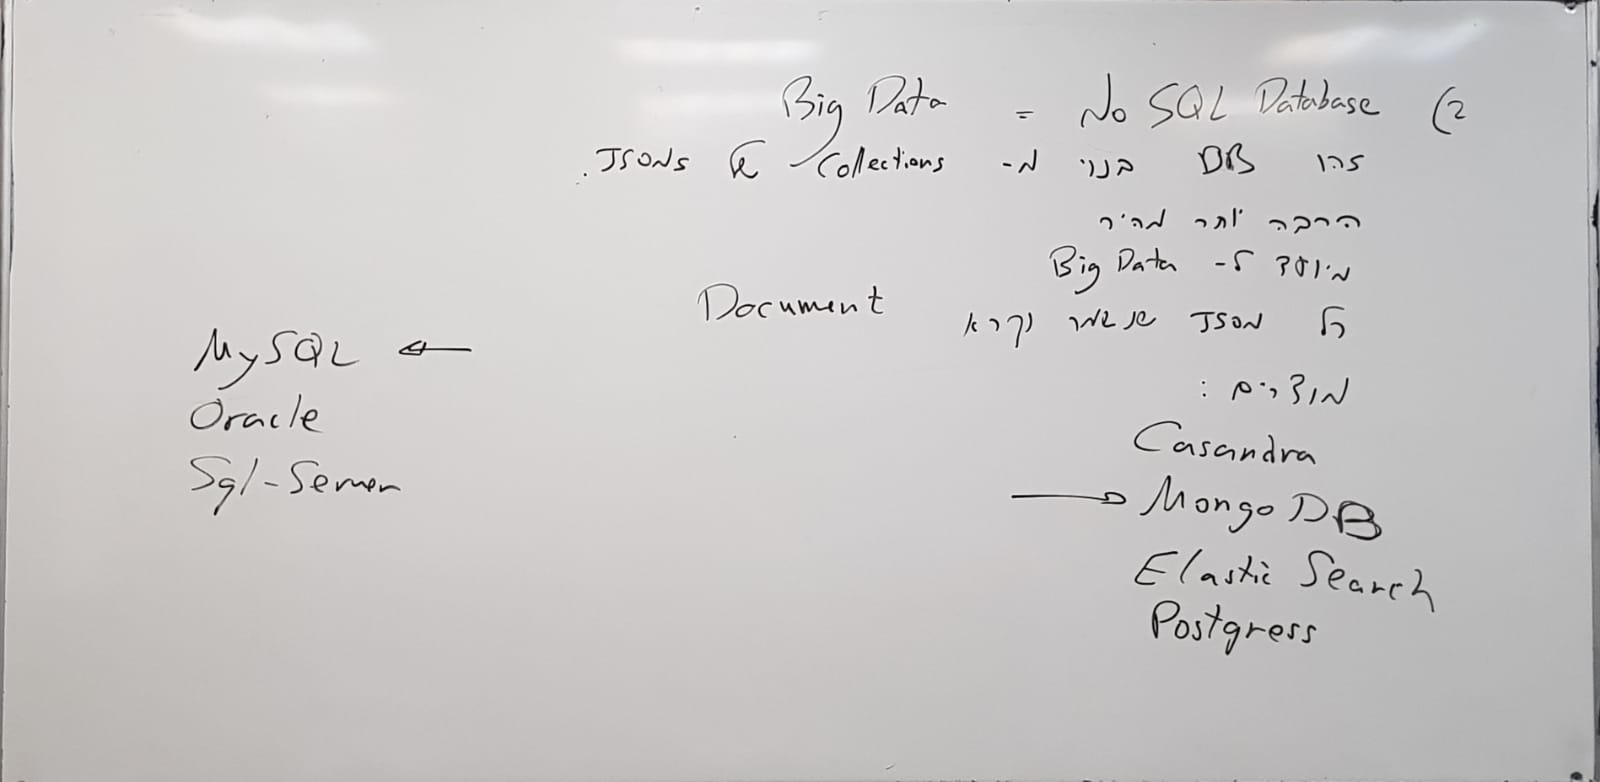 2) No SQL Database = Big Data
זהו DB בנוי מ- Collections של JSONs.
הרבה יותר מהיר
מיועד ל- Big Data
כל JSON שנשמר נקרא Document
מוצרים :
Casandra
→ Mongo DB
Elastic Search
Postgress
MySQL ←
Oracle
Sql-Server